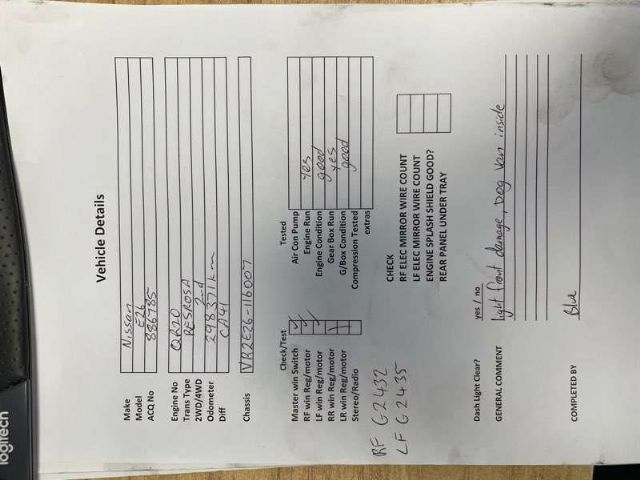 Vehicle Details
Make Nissan
Model E26
ACQ No 886785
Engine No QR20
Trans Type
2WD/4WD 2wd
Odometer 298371km
Diff CA41
Chassis VR2E26-116007
Check/Test
Master win Switch
RF win Reg/motor
LF win Reg/motor
RR win Reg/motor
LR win Reg/motor
Stereo/Radio
Tested
Air Con Pump
Engine Run Yes
Engine Condition good
Gear Box Run Yes
G/Box Condition good
Compression Tested
extras
RF G2432
LF G2435
CHECK
RF ELEC MIRROR WIRE COUNT
LF ELEC MIRROR WIRE COUNT
ENGINE SPLASH SHIELD GOOD?
REAR PANEL UNDER TRAY
Dash Light Clear? yes / no
GENERAL COMMENT light front damage, Dog Van inside
COMPLETED BY
logitech